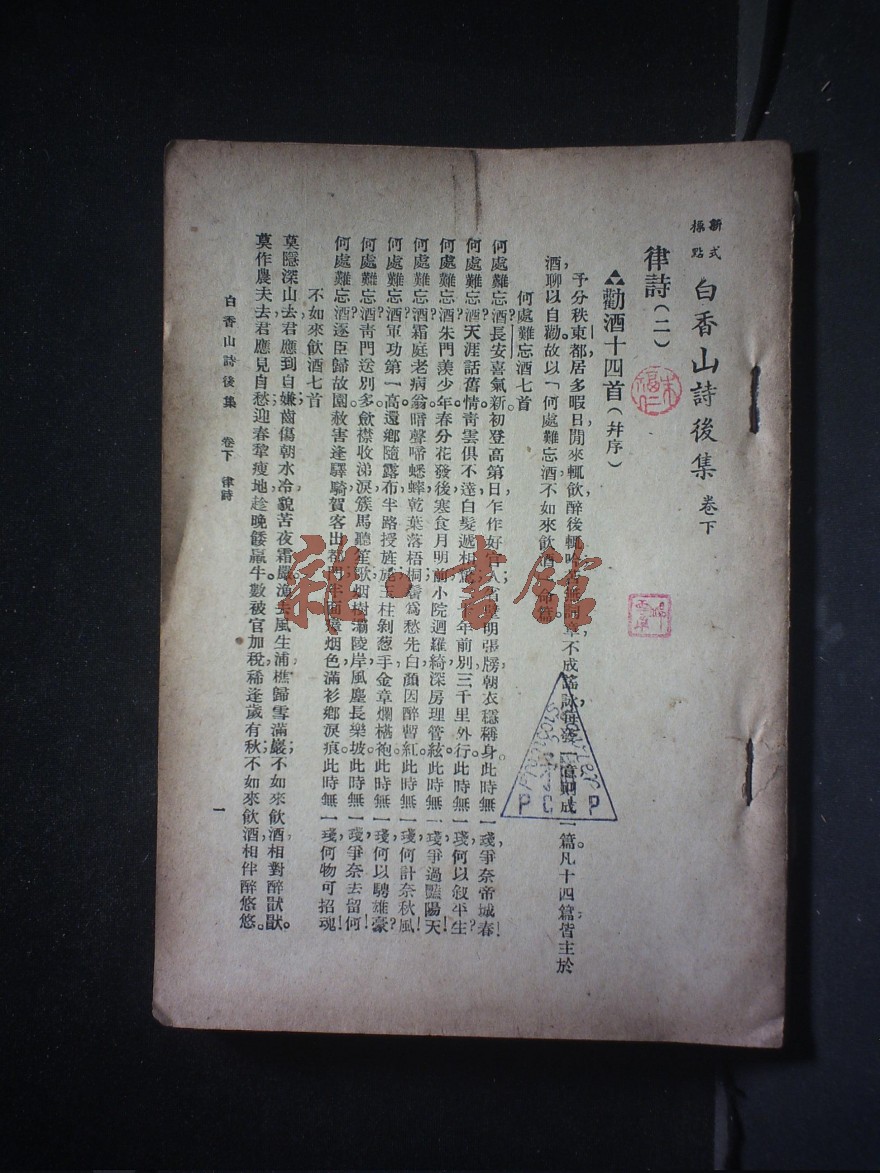 新式標點 白香山詩後集 卷下
律詩(二)
勸酒十四首(幷序)
予分秩東都,居多暇日,閒來輒飲,醉後輒吟,不成謠詠,每發一意,則成一篇。凡十四篇,皆主於
酒,聊以自勸,故以「何處難忘酒不如來飲酒
何處難忘酒七首
何處難忘酒?長安喜氣新。初登高第日,乍作好官人。省壁明張牓,朝衣穩稱身。此時無一琖,爭奈帝城春!
何處難忘酒?天涯話舊情。靑雲俱不達,白髮遞相年前別,三千里外行。此時無一琖,何以敍平生?
何處難忘酒?朱門羨少年。春分花發後,寒食月明前。小院迴羅綺,深房理管絃。此時無一琖,爭過豔陽天!
何處難忘酒?霜庭老病翁。暗聲啼蟋蟀,乾葉落梧桐。鬢爲愁先白,顏因醉暫紅。此時無一琖,何計奈秋風!
何處難忘酒?軍功第一高。還鄉隨露布,半路授旌旄。玉柱剝葱手,金章爛椹袍。此時無一琖,何以騁雄豪?
何處難忘酒?靑門送別多。斂襟收涕淚,簇馬聽笙歌。烟樹灞陵岸,風塵長樂坡。此時無一琖,爭奈去留何!
何處難忘酒?逐臣歸故園。赦書逢驛騎,賀客出都門。半面瘴烟色,滿衫鄉淚痕。此時無一琖,何物可招魂!
不如來飲酒七首
莫隱深山去,君應到自嫌。齒傷朝水冷,貌苦夜霜嚴。漁去風生浦,樵歸雪滿巖。不如來飲酒,相對醉猒猒。
莫作農夫去,君應見自愁。迎春犂瘦地,趁晚餧羸牛。數被官加稅,稀逢歲有秋。不如來飲酒,相伴醉悠悠。
白香山詩後集 卷下 律詩
一
P C P